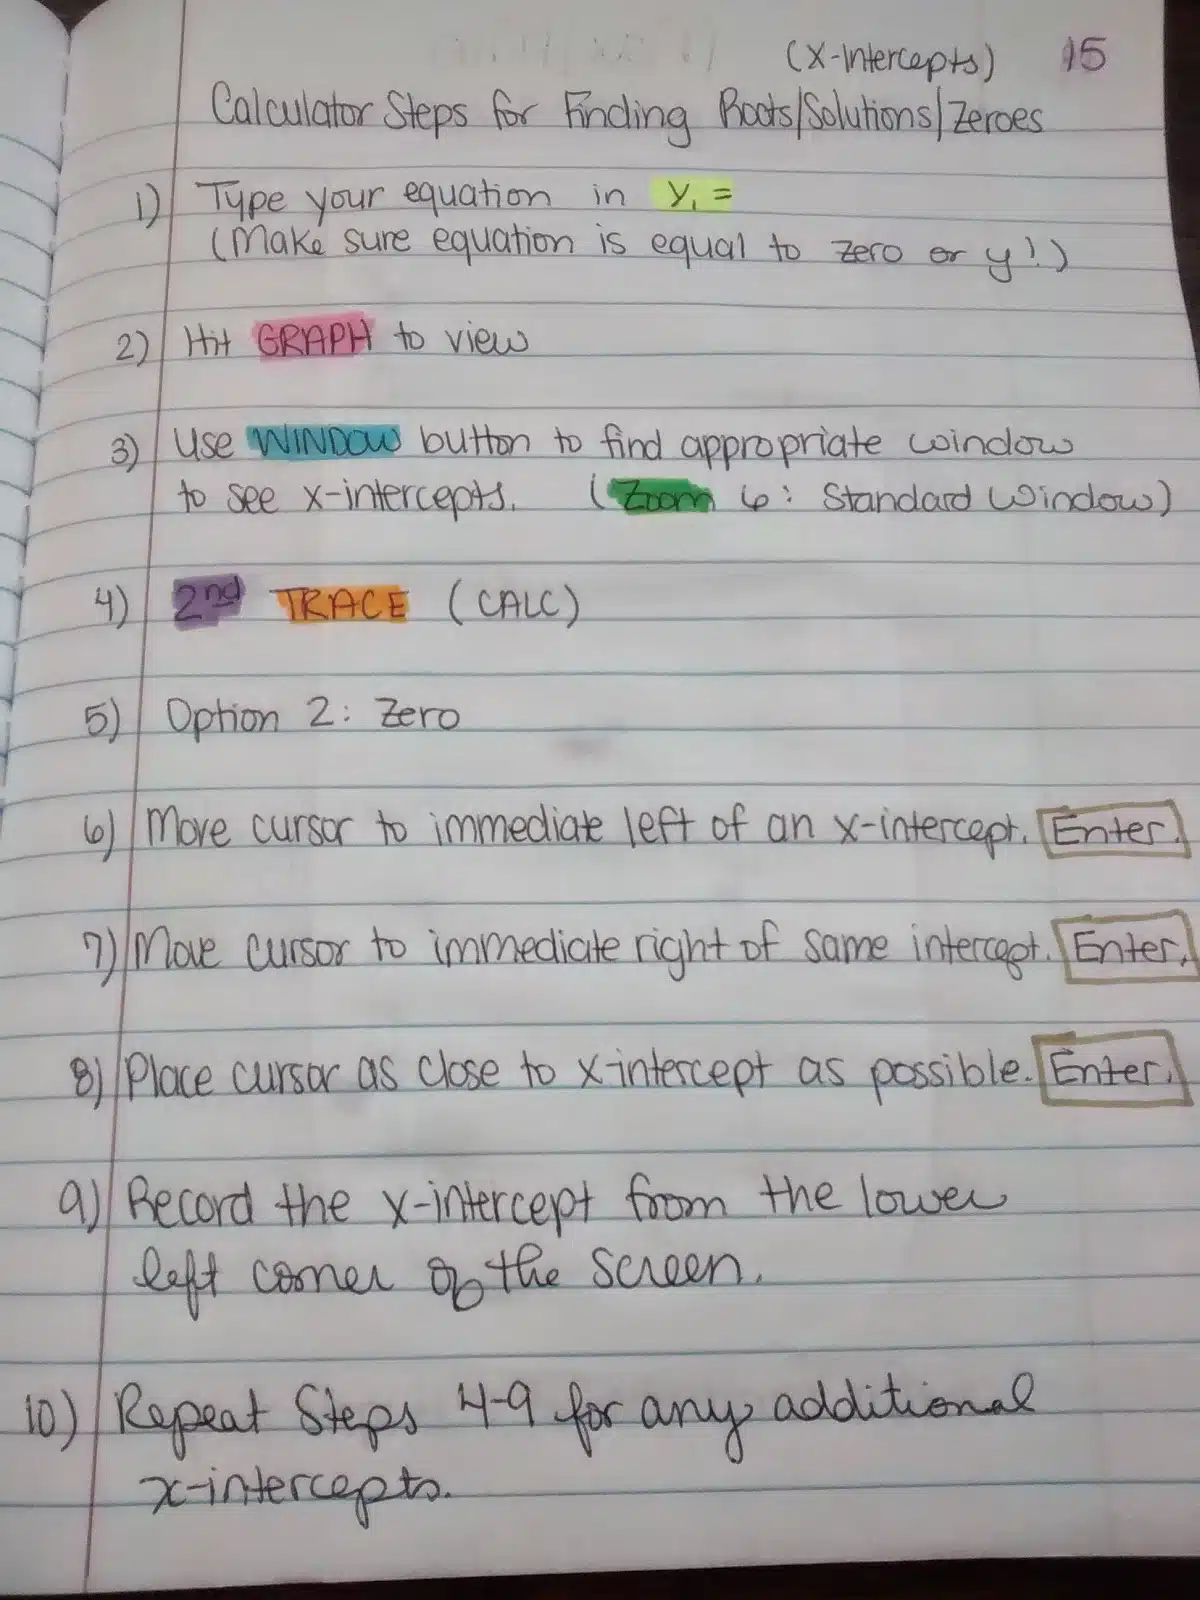 (X-Intercepts) 15
Calculator Steps for Finding Roots/Solutions/Zeroes
1) Type your equation in Y₁ =
(Make sure equation is equal to zero or y!)
2) Hit GRAPH to view
3) Use WINDOW button to find appropriate window
to see x-intercepts. (Zoom 6: Standard Window)
4) 2nd TRACE (CALC)
5) Option 2: Zero
6) Move cursor to immediate left of an x-intercept. Enter.
7) Move cursor to immediate right of same intercept. Enter.
8) Place cursor as close to x-intercept as possible. Enter.
9) Record the x-intercept from the lower
left corner of the screen.
10) Repeat Steps 4-9 for any additional
x-intercepts.